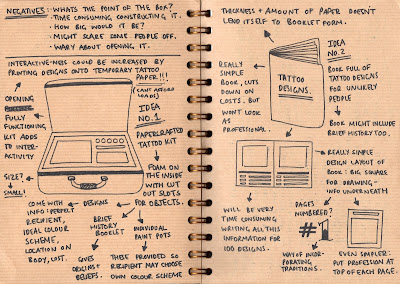 NEGATIVES: · WHATS THE POINT OF THE BOX?
· TIME CONSUMING CONSTRUCTING IT.
· HOW BIG WOULD IT BE?
· MIGHT SCARE SOME PEOPLE OFF.
· WARY ABOUT OPENING IT.
INTERACTIVE-NESS COULD BE INCREASED BY
PRINTING DESIGNS ONTO TEMPORARY TATTOO
PAPER!!!
(CANT AFFORD
LOADS)
OPENING
FULLY
FUNCTIONING
KIT ADDS
TO INTER-
ACTIVITY
IDEA
NO.1
PAPERCRAFTED
TATTOO KIT
FOAM ON
THE INSIDE
WITH CUT
OUT SLOTS
FOR OBJECTS.
SIZE?
SMALL!
COME WITH
INFO: PERFECT
RECIPIENT,
IDEAL COLOUR
SCHEME,
LOCATION ON
BODY, COST.
DESIGNS
BRIEF
HISTORY
BOOKLET
GIVES
ORIGINS +
BELIEFS.
INDIVIDUAL
PAINT POTS
THESE PROVIDED SO
RECIPIENT MAY CHOOSE
OWN COLOUR SCHEME
THICKNESS + AMOUNT OF PAPER DOESN'T
LEND ITSELF TO BOOKLET FORM.
REALLY
SIMPLE
BOOK, CUTS
DOWN ON
COSTS. BUT
WON'T LOOK
AS
PROFESSIONAL.
TATTOO
DESIGNS.
IDEA
NO.2
BOOK FULL
OF TATTOO
DESIGNS FOR
UNLIKELY
PEOPLE
BOOK MIGHT INCLUDE
BRIEF HISTORY TOO.
REALLY SIMPLE
DESIGN LAYOUT OF
BOOK: BIG SQUARE
FOR DRAWING-
INFO UNDERNEATH
WILL BE VERY
TIME CONSUMING
WRITING ALL THIS
INFORMATION FOR
100 DESIGNS.
PAGES
NUMBERED?
#1
WAY OF INCOR-
PORATING
TRADITIONS.
EVEN SIMPLER:
PUT PROFESSION AT
TOP OF EACH PAGE.